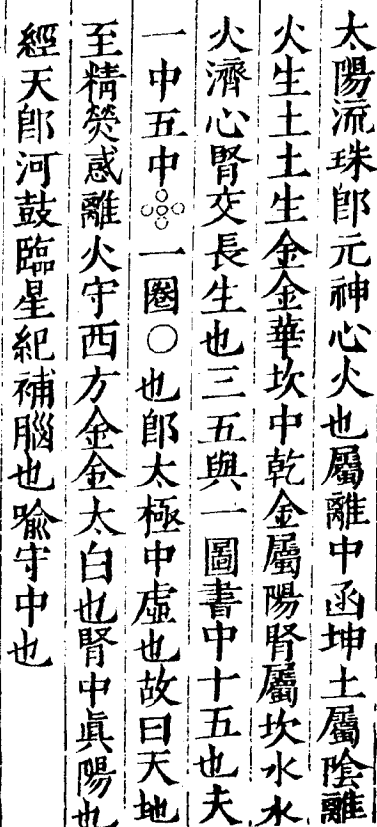 太陽流珠卽元神心火也屬離中函坤土屬陰離
火生土土生金金華坎中乾金屬陽腎屬坎水水
火濟心腎交長生也三五與一圖書中十五也夫
一中五中一圈〇也卽太極中虛也故曰天地
至精熒惑離火守西方金金太白也腎中眞陽也
經天卽河鼓臨星紀補腦也喻守中也